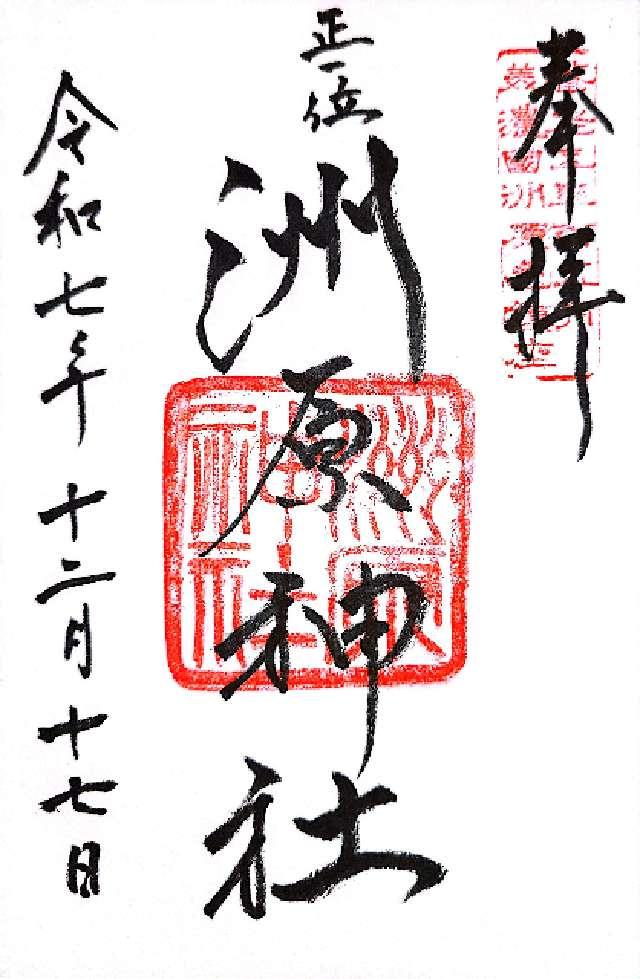 奉拝
正一位
洲原神社
令和七年十二月十七日
洲原神社